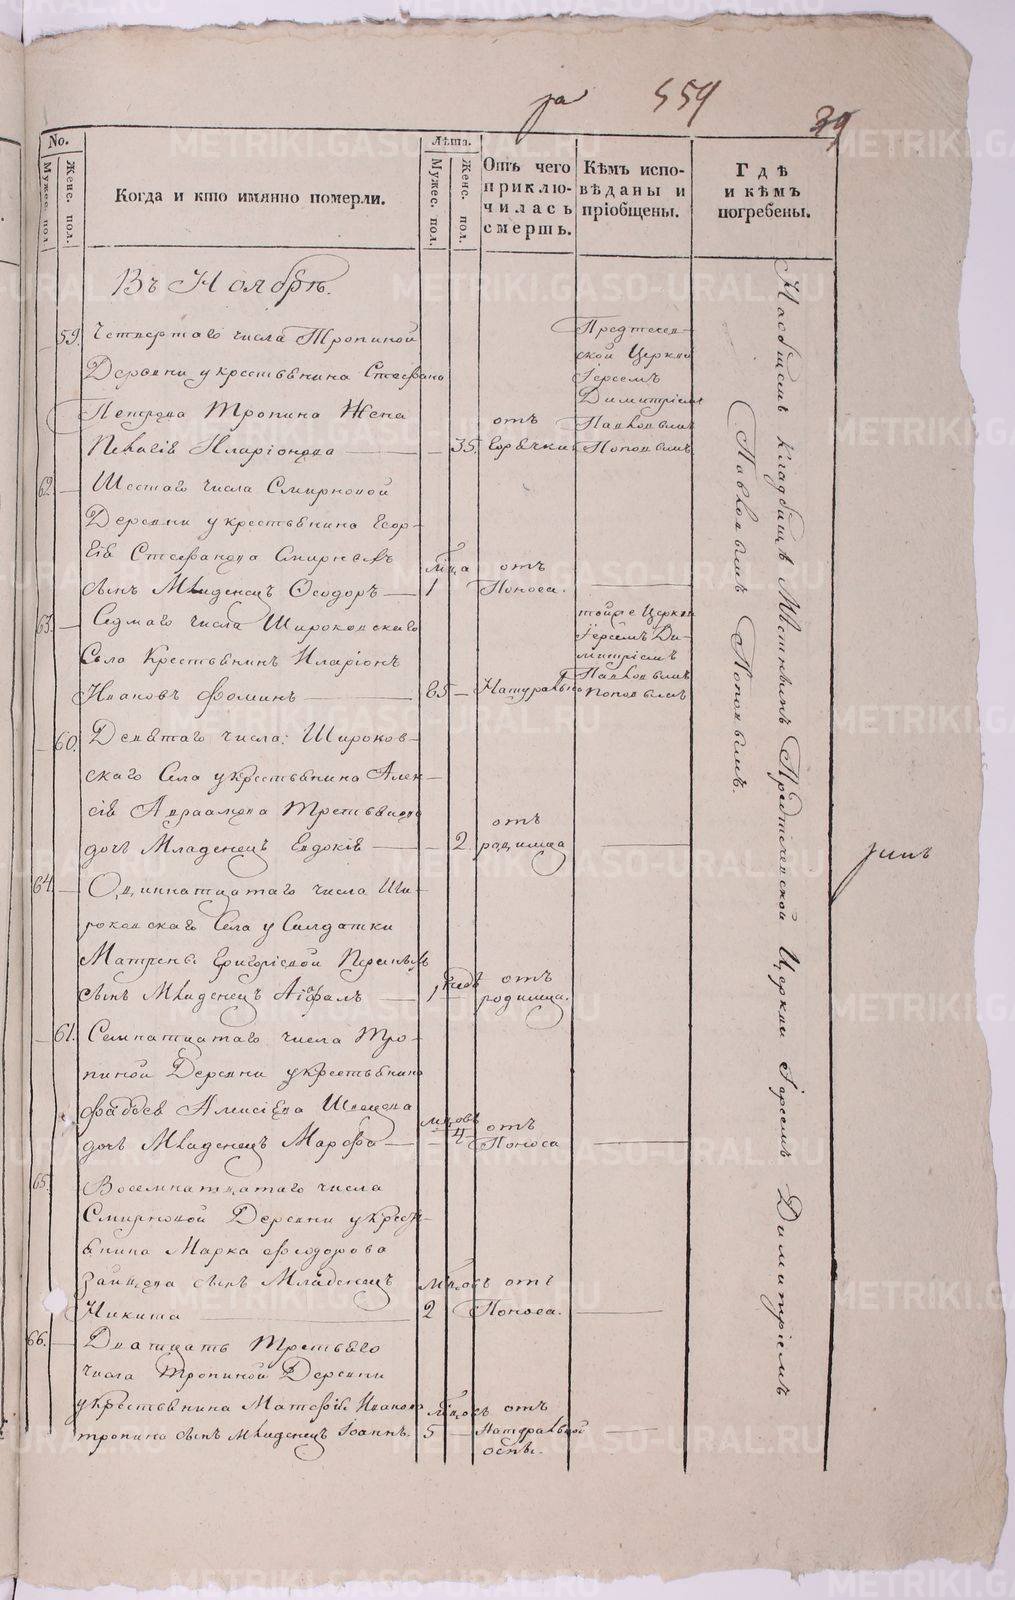 559
39
No.
Мужес. пол.
Женс. пол.
Когда и кто имянно померли.
Лѣта.
Мужес. пол.
Женс. пол.
Отъ чего приключилась смерть.
Кѣмъ исповѣданы и пріобщены.
Гдѣ и кѣмъ погребены.
Въ Ноябрѣ.
59. Четвертаго числа Тропиной
Деревни у крестьянина Стефана
Петрова Тропина Жена
Пелагія Иларіонова — 35.
отъ
горячки
Предтечен-
ской Церкви
Іереемъ
Димитріемъ
Павловымъ
Поповымъ
62. Шестаго числа Смирновой
Деревни у крестьянина Геор-
гія Стефанова Смирновъ
сынъ Младенецъ Ѳеодоръ — 1
отъ
Поноса.
63. Седмаго числа Широковскаго
Села Крестьянинъ Иларіонъ
Ивановъ Фоминъ — 65 —
Натурально
тойже Церкви
Іереемъ Ди-
митріемъ
Павловымъ
Поповымъ
60. Девятаго числа: Широков-
скаго Села у крестьянина Алек-
сія Авраамова Третьякова
дочь Младенецъ Евдокія — 2
отъ
родимца
64. Одиннатцатаго числа Ши-
роковскаго Села у Салдатки
Матрены Григоріевой
сынъ Младенецъ — 1
отъ
родимца.
61. Семнатцатаго числа Тро-
пиной Деревни у крестьянина
Фаддея Алексіева Швецова
дочь Младенецъ Марфа — 4
отъ
Поноса
65. Восемнатцатаго числа
Смирновой Деревни у крест-
янина Марка Феодорова
Зайцова сынъ Младенецъ
Никита — 2
отъ
Поноса.
66. Дватцать Третьяго
числа Тропиной Деревни
у крестьянина Матфія Иванова
тропина сынъ Младенецъ Іоаннъ. 5
отъ
Натуральной
оспы.
На общемъ кладбищѣ Мѣстнымъ Предтеченской Церкви Іереемъ Димитріемъ
Павловымъ Поповымъ.
METRIKI.GASO-URAL.RU